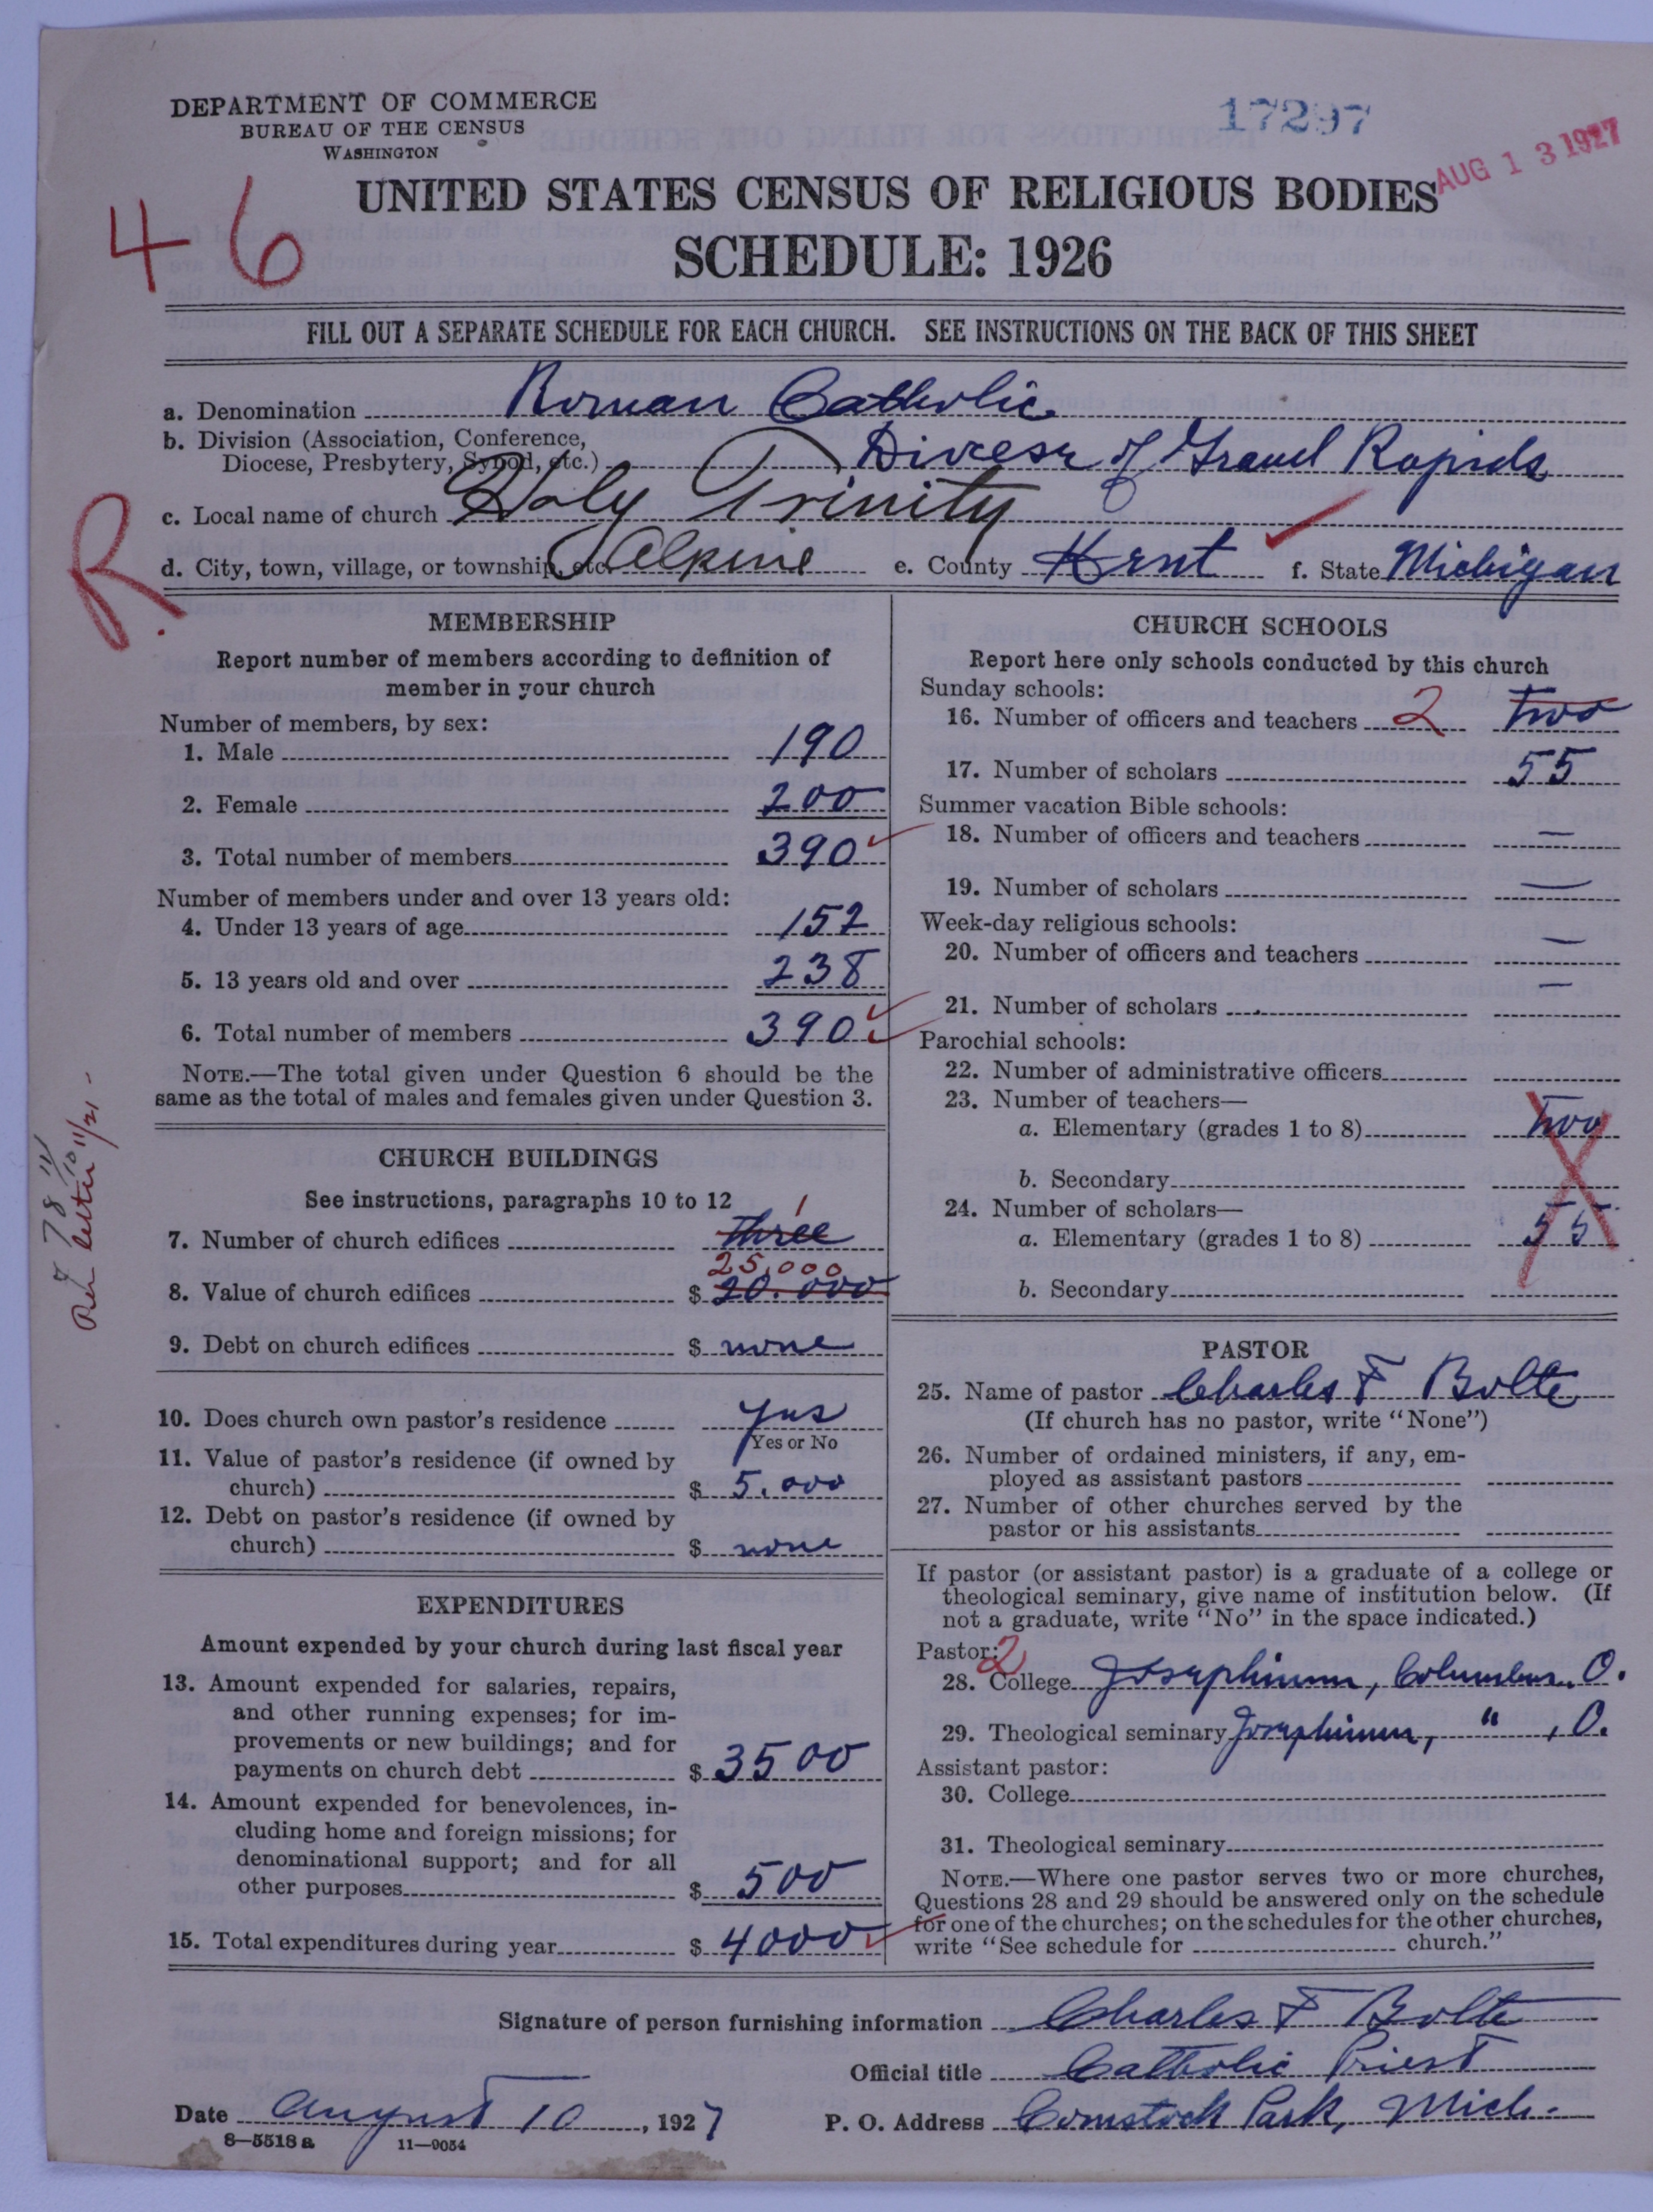 DEPARTMENT OF COMMERCE
BUREAU OF THE CENSUS
WASHINGTON
17297
AUG 13 1927
46
UNITED STATES CENSUS OF RELIGIOUS BODIES
SCHEDULE: 1926
FILL OUT A SEPARATE SCHEDULE FOR EACH CHURCH. SEE INSTRUCTIONS ON THE BACK OF THIS SHEET
a. Denomination Roman Catholic
b. Division (Association, Conference,
Diocese, Presbytery, Synod, etc.) Diocese of Grand Rapids
c. Local name of church Holy Trinity
R.
d. City, town, village, or township, etc. Alpine e. County Kent f. State Michigan
MEMBERSHIP
Report number of members according to definition of
member in your church
Number of members, by sex:
1. Male 190
2. Female 200
3. Total number of members 390
Number of members under and over 13 years old:
4. Under 13 years of age 152
5. 13 years old and over 238
6. Total number of members 390
NOTE.—The total given under Question 6 should be the
same as the total of males and females given under Question 3.
CHURCH BUILDINGS
See instructions, paragraphs 10 to 12
7. Number of church edifices three 1
8. Value of church edifices $ 20.000 25,000
9. Debt on church edifices $ none
10. Does church own pastor's residence yes
Yes or No
11. Value of pastor's residence (if owned by
church) $ 5.000
12. Debt on pastor's residence (if owned by
church) $ none
EXPENDITURES
Amount expended by your church during last fiscal year
13. Amount expended for salaries, repairs,
and other running expenses; for im-
provements or new buildings; and for
payments on church debt $ 3500
14. Amount expended for benevolences, in-
cluding home and foreign missions; for
denominational support; and for all
other purposes $ 500
15. Total expenditures during year $ 4000
CHURCH SCHOOLS
Report here only schools conducted by this church
Sunday schools:
16. Number of officers and teachers 2 two
17. Number of scholars 55
Summer vacation Bible schools:
18. Number of officers and teachers —
19. Number of scholars —
Week-day religious schools:
20. Number of officers and teachers —
21. Number of scholars —
Parochial schools:
22. Number of administrative officers
23. Number of teachers—
a. Elementary (grades 1 to 8) two
b. Secondary
24. Number of scholars—
a. Elementary (grades 1 to 8) 55
b. Secondary
PASTOR
25. Name of pastor Charles F Bolte
(If church has no pastor, write "None")
26. Number of ordained ministers, if any, em-
ployed as assistant pastors
27. Number of other churches served by the
pastor or his assistants
If pastor (or assistant pastor) is a graduate of a college or
theological seminary, give name of institution below. (If
not a graduate, write "No" in the space indicated.)
Pastor: 2
28. College Josephinum, Columbus, O.
29. Theological seminary Josephinum, " , O.
Assistant pastor:
30. College
31. Theological seminary
NOTE.—Where one pastor serves two or more churches,
Questions 28 and 29 should be answered only on the schedule
for one of the churches; on the schedules for the other churches,
write "See schedule for church."
Signature of person furnishing information Charles F Bolte
Official title Catholic Priest
Date August 10, 1927 P. O. Address Comstock Park, Mich.
8—5518 a 11—9054